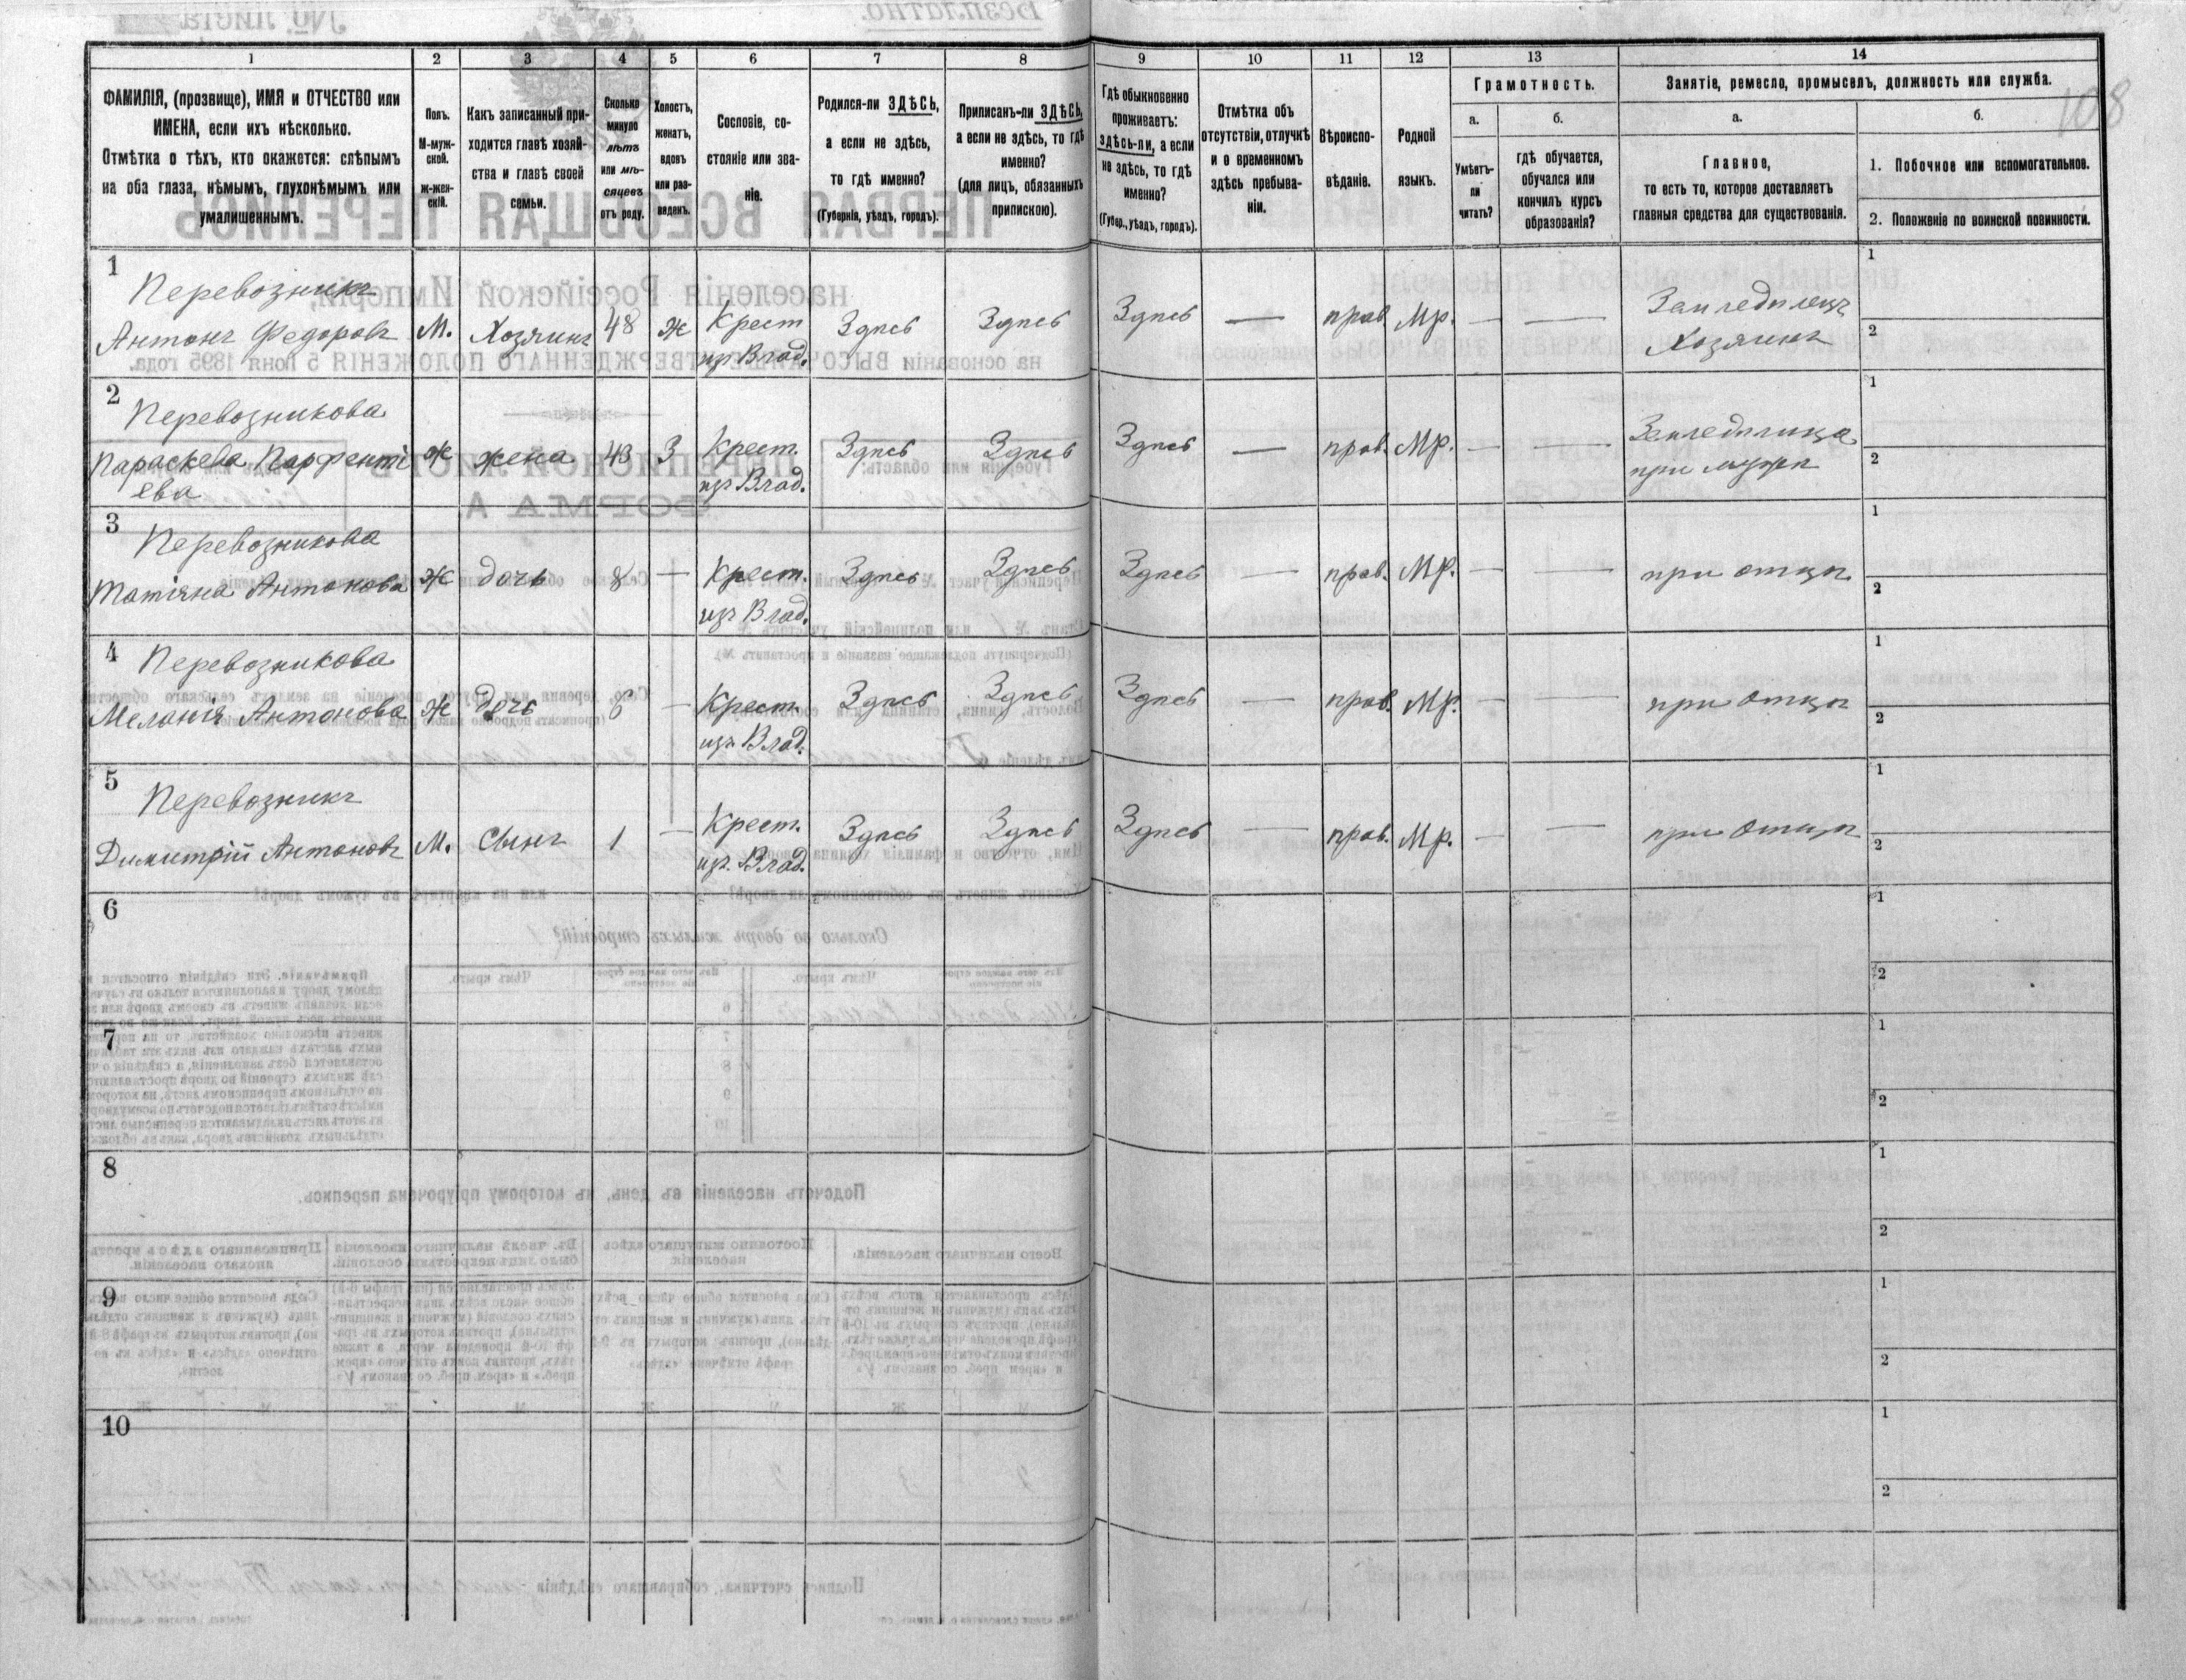 108
1
2
3
4
5
6
7
8
9
10
11
12
13
14
ФАМИЛІЯ, (прозвище), ИМЯ и ОТЧЕСТВО или
ИМЕНА, если ихъ нѣсколько.
Отмѣтка о тѣхъ, кто окажется: слѣпымъ
на оба глаза, нѣмымъ, глухонѣмымъ или
умалишеннымъ.
Полъ.
М-муж-
ской.
ж-жен-
скій.
Какъ записанный при-
ходится главѣ хозяй-
ства и главѣ своей
семьи.
Сколько
минуло
лѣтъ
или мѣ-
сяцевъ
отъ роду.
Холостъ,
женатъ,
вдовъ
или раз-
веденъ.
Сословіе, со-
стояніе или зва-
ніе.
Родился-ли ЗДѢСЬ,
а если не здѣсь,
то гдѣ именно?
(Губернія, уѣздъ, городъ).
Приписанъ-ли ЗДѢСЬ,
а если не здѣсь, то гдѣ
именно?
(для лицъ, обязанныхъ
припискою).
Гдѣ обыкновенно
проживаетъ:
здѣсь-ли, а если
не здѣсь, то гдѣ
именно?
(Губер., уѣздъ, городъ).
Отмѣтка объ
отсутствіи, отлучкѣ
и о временномъ
здѣсь пребыва-
ніи.
Вѣроиспо-
вѣданіе.
Родной
языкъ.
Грамотность.
а.
Умѣетъ-
ли
читать?
б.
гдѣ обучается,
обучался или
кончилъ курсъ
образованія?
Занятіе, ремесло, промыселъ, должность или служба.
а.
Главное,
то есть то, которое доставляетъ
главныя средства для существованія.
б.
1. Побочное или вспомогательное.
2. Положеніе по воинской повинности.
1
Перевозникъ
Антонъ Федоровъ М. Хозяинъ 48 ж Крест. Здѣсь Здѣсь Здѣсь — прав. Мр. — — Земледѣлецъ
изъ Влад. Хозяинъ
1
2
2
Перевозникова
Параскева Парфенті Ж жена 43 З Крест. Здѣсь Здѣсь Здѣсь — прав. Мр. — — Земледѣлица
ева изъ Влад. при мужѣ
1
2
3
Перевозникова
Татіяна Антонова Ж дочь 8 — Крест. Здѣсь Здѣсь Здѣсь — прав. Мр. — — при отцѣ
изъ Влад.
1
2
4
Перевозникова
Меланія Антонова Ж дочь 6 — Крест. Здѣсь Здѣсь Здѣсь — прав. Мр. — — при отцѣ
изъ Влад.
1
2
5
Перевозникъ
Димитрій Антоновъ М. Сынъ 1 — Крест. Здѣсь Здѣсь Здѣсь — прав. Мр. — — при отцѣ
изъ Влад.
1
2
6
1
2
7
1
2
8
1
2
9
1
2
10
1
2